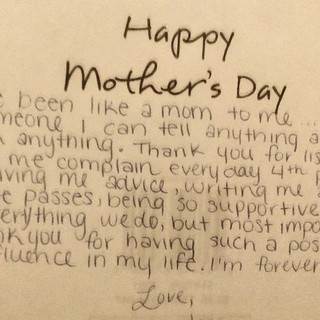 Happy
Mother's Day
been like a mom to me...
I can tell anything a
anything. Thank you for
me complain everyday 4th
me advice, writing me
passes, being so supportive
we do, but most
you for having such a
in my life. I'm forever
Love,